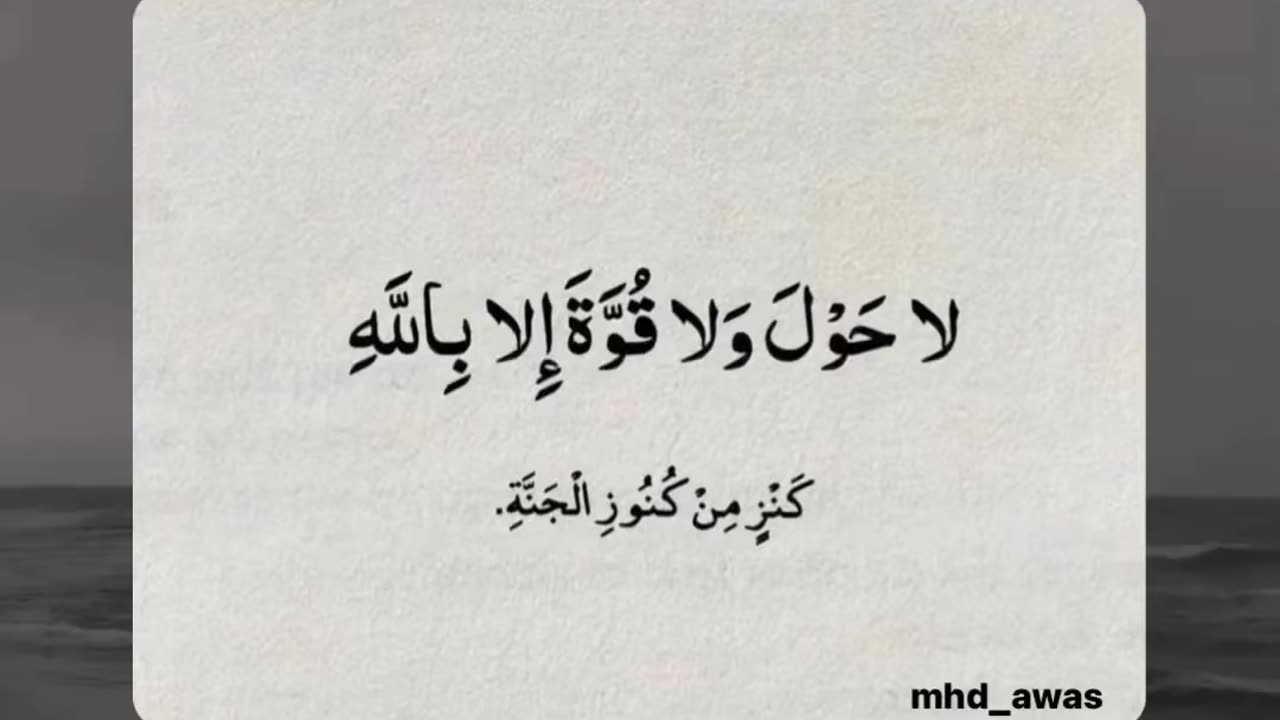 لا حَوْلَ وَلا قُوَّةَ إِلا بِاللَّهِ
كَنْزٍ مِنْ كُنُوزِ الْجَنَّةِ.
mhd_awas